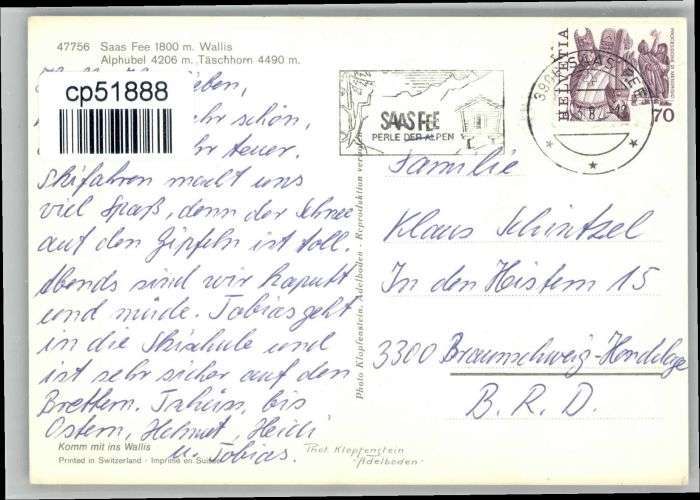 47756 Saas Fee 1800 m. Wallis
Alphubel 4206 m. Täschhorn 4490 m.
cp51888
schön,
teuer.
Skifahren macht uns
viel Spaß, denn der Schnee
auf den Gipfeln ist toll.
Abends sind wir kaputt
und müde. Tobias geht
in die Skischule und
ist sehr sicher auf den
Brettern. Tschüss, bis
Ostern, Helmut, Heidi
u. Tobias.
Komm mit ins Wallis
Printed in Switzerland - Imprimé en Suisse
Photo Klopfenstein, Adelboden - Reproduktion verboten
Phot. Klopfenstein
"Adelboden"
SAAS FEE
PERLE DER ALPEN
3906 SAAS-FEE
HELVETIA
70
Familie
Klaus Schintzel
In den Höstern 15
3300 Braunschweig-Hondelage
B. R. D.